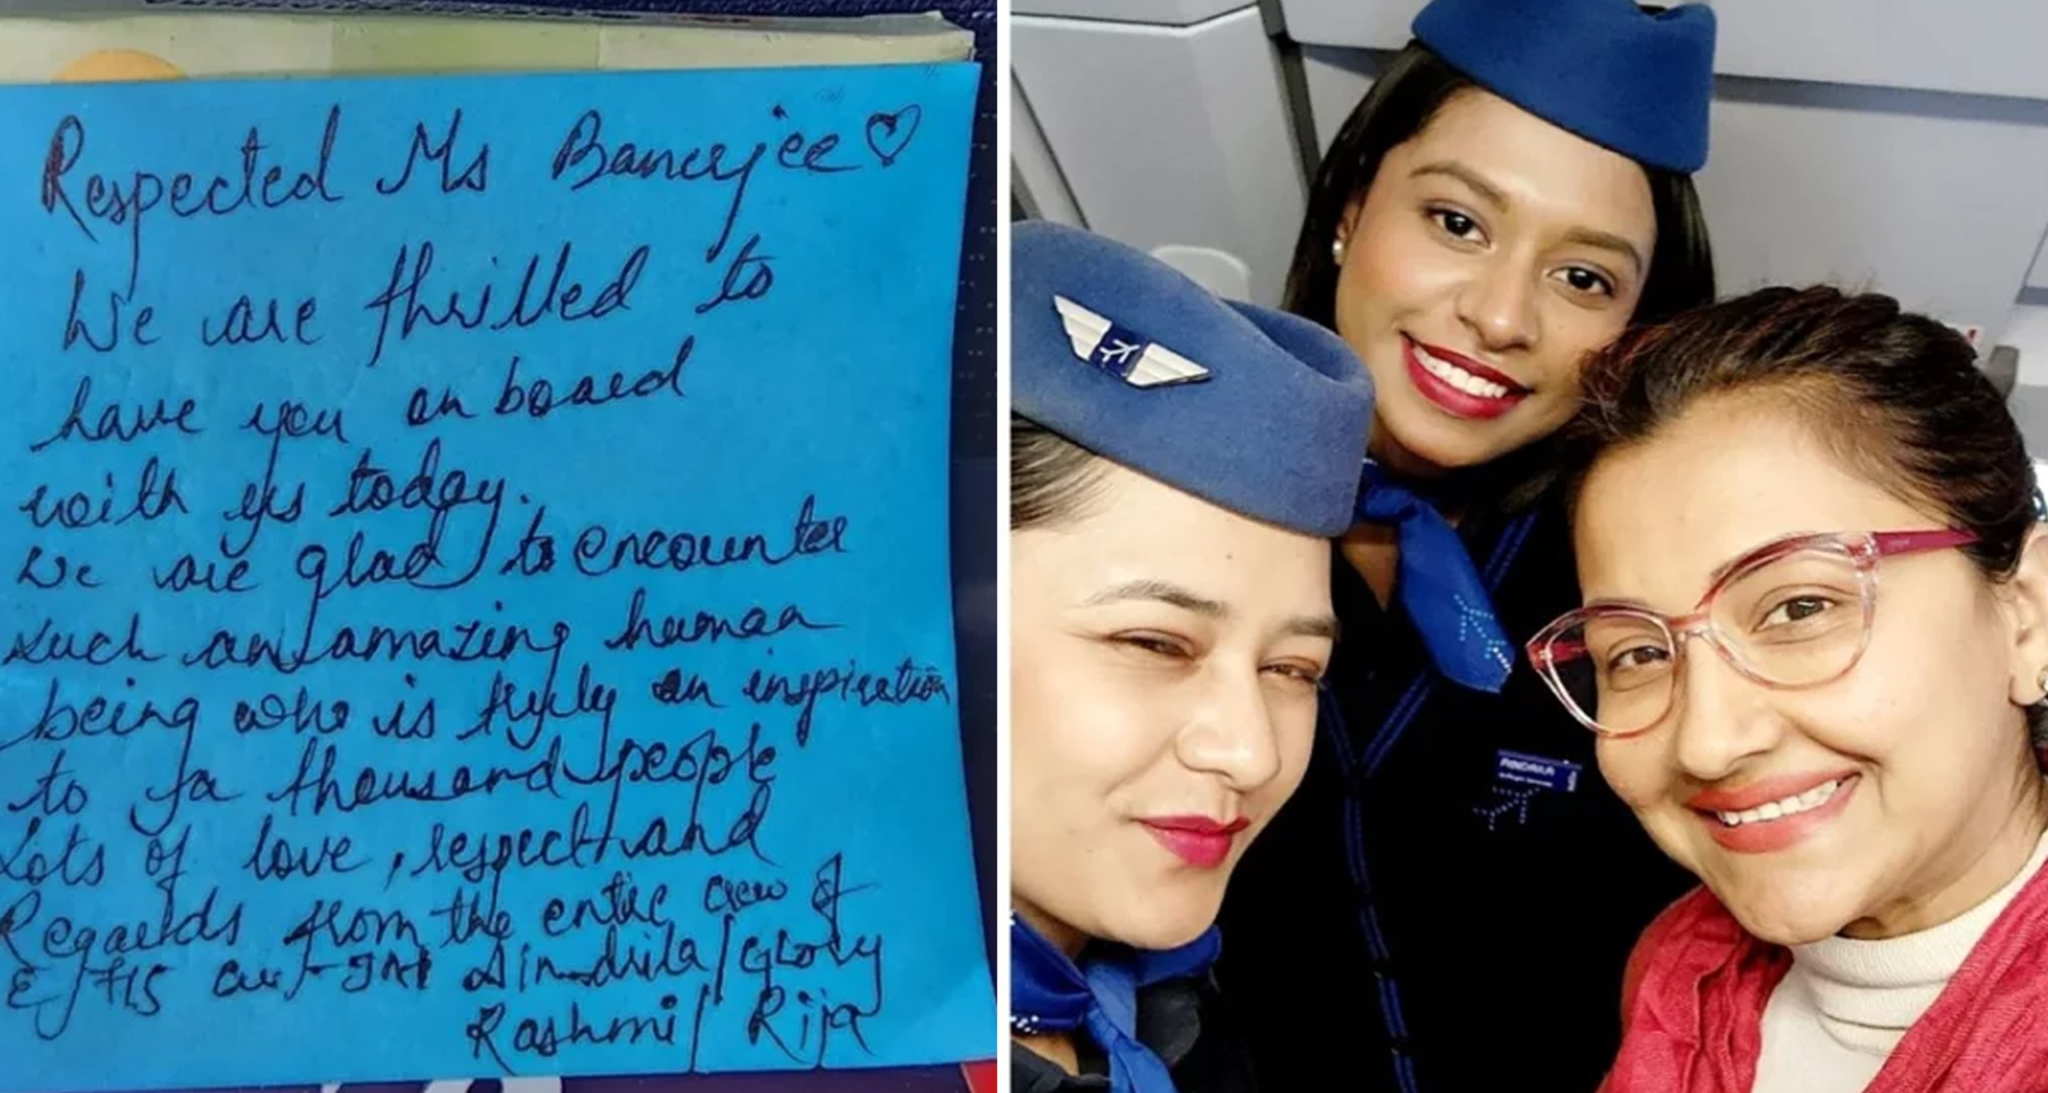 Respected Ms Banerjee
We are thrilled to
have you on board
with us today.
We are glad to encounter
such an amazing human
being who is truly an inspiration
to a thousand people
Lots of love, respect and
Regards from the entire crew of
6E/715 Sindrila/Glory
Rashmi/ Rija